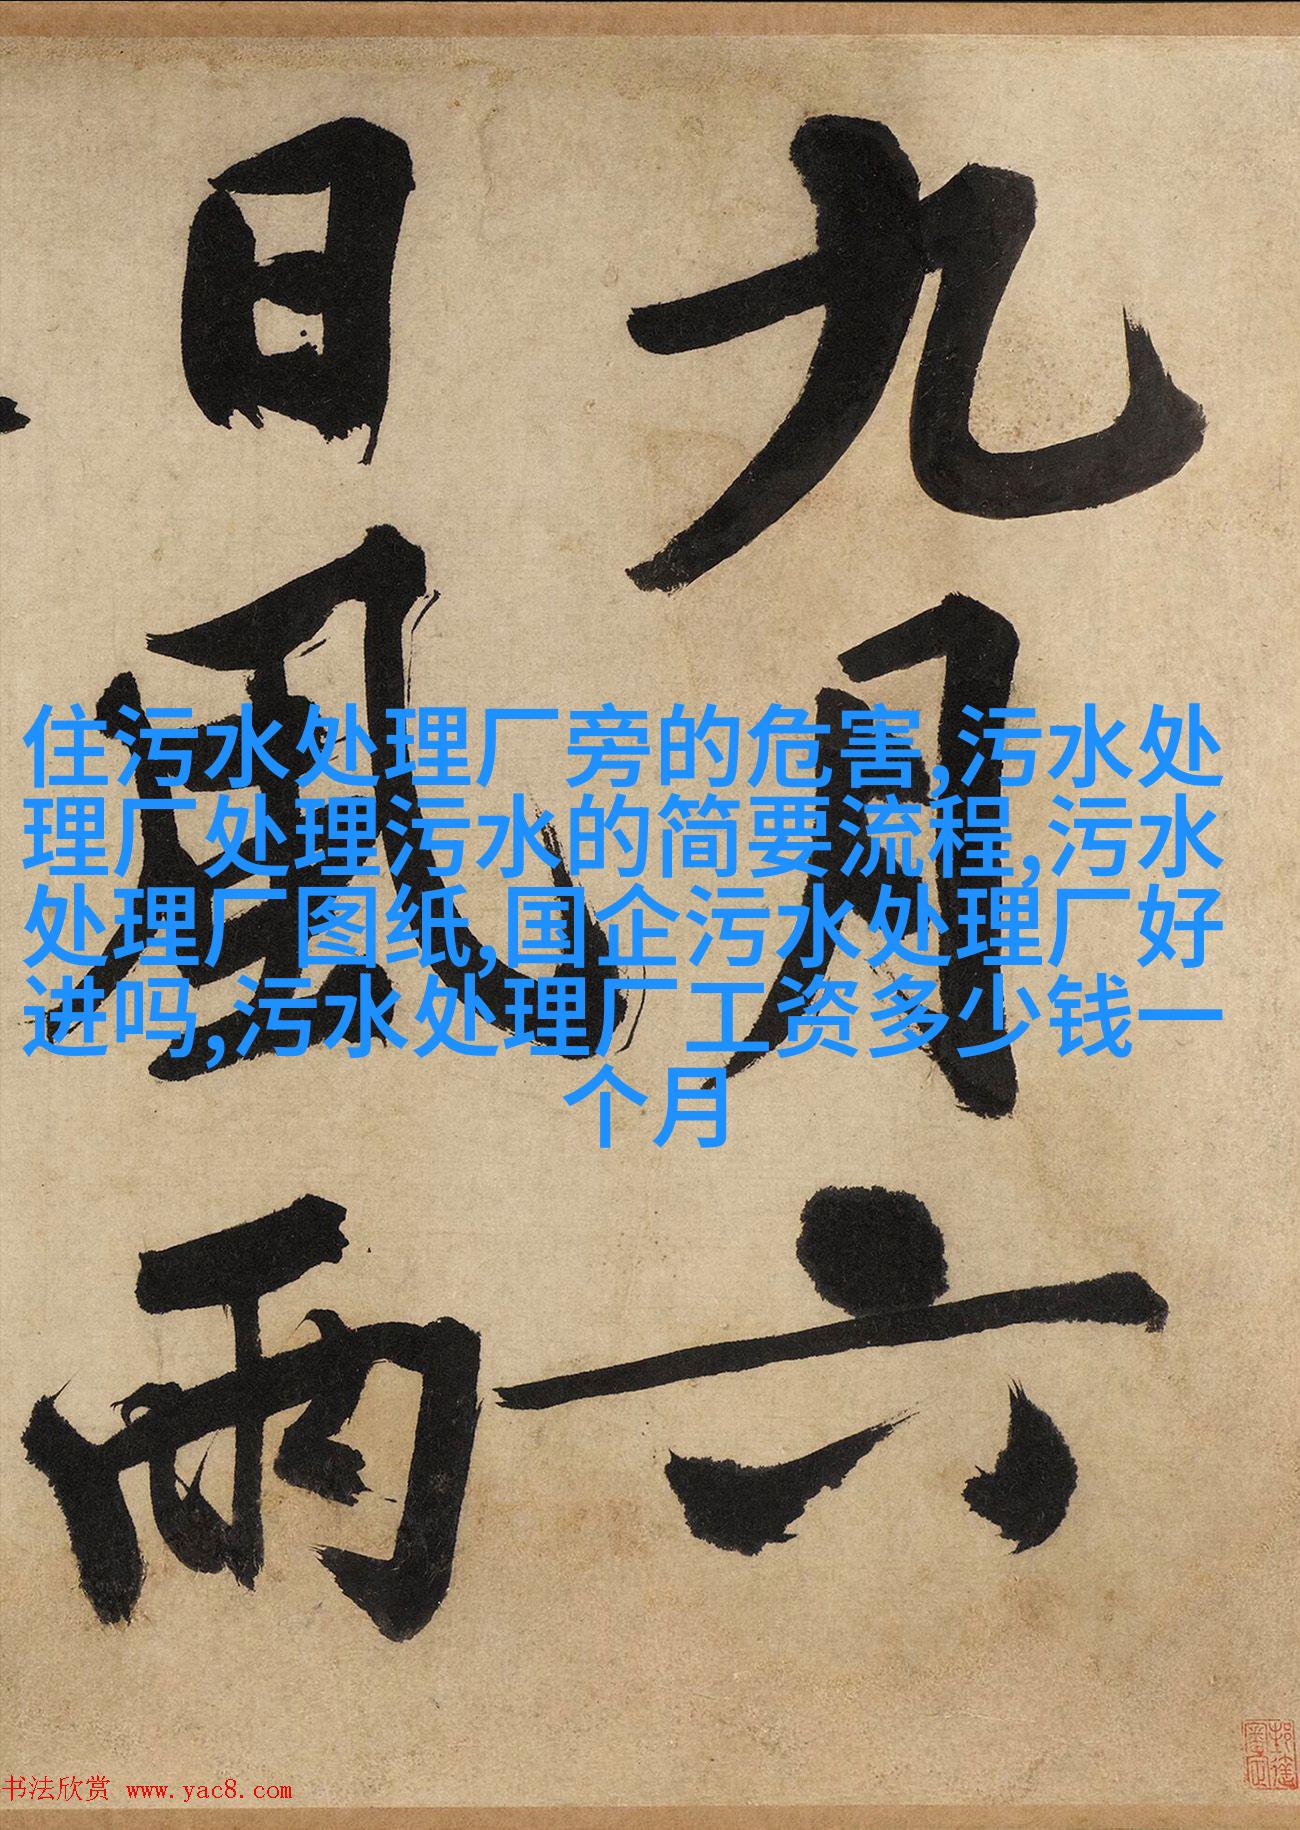 九月六
日風雨
住污水处理厂旁的危害,污水处
理厂处理污水的简要流程,污水
处理厂图纸,国企污水处理厂好
进吗,污水处理厂工资多少钱一
个月
书法欣赏 www.yac8.com